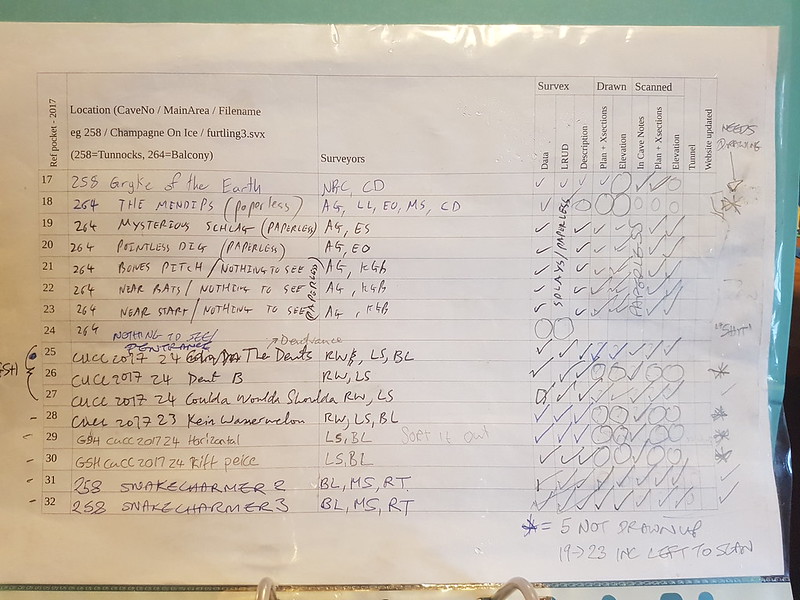 Survex Drawn Scanned
Ref pocket - 2017
Location (CaveNo / MainArea / Filename
eg 258 / Champagne On Ice / furtling3.svx
(258=Tunnocks, 264=Balcony)
Surveyors
Data
LRUD
Description
Plan + Xsections
Elevation
In Cave Notes
Plan + Xsections
Elevation
Tunnel
Website updated
NEEDS
DRAWING
17 258 Gryke of the Earth NRC, CD
18 264 THE MENDIPS (paperless) AG, LL, EO, MS, CD
19 264 MYSTERIOUS SCHLAG (PAPERLESS) AG, ES
20 264 POINTLESS DIG (PAPERLESS) AG, EO
21 264 BONES PITCH / NOTHING TO SEE AG, KGB
22 264 NEAR BATS / NOTHING TO SEE AG, KGB
23 264 NEAR START / NOTHING TO SEE AG, KGB
(PAPERLESS)
SPLAYS / PAPERLESS
PAPERLESS
24 264 NOTHING TO SEE/
"SHIT"
25 CUCC 2017 24 The Dents RW, LS, BL
26 CUCC 2017 24 Dent B RW, LS
27 CUCC 2017 24 Coulda Woulda Shoulda RW, LS
28 CUCC 2017 23 Kein Wassermelon RW, LS, BL
29 GSH CUCC 2017 24 Horizontal LS, BL Sort it out
30 GSH CUCC 2017 24 Rift peice LS, BL
31 258 SNAKECHARMER 2 BL, MS, RT
32 258 SNAKECHARMER 3 BL, MS, RT
* = 5 NOT DRAWN UP
19->23 INC LEFT TO SCAN